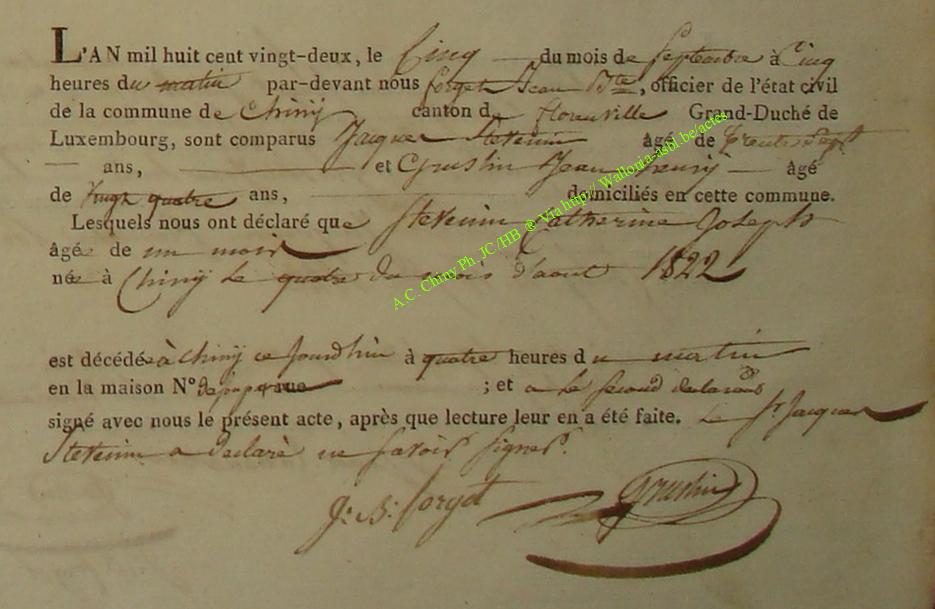 L'AN mil huit cent vingt-deux, le Cinq du mois de Septembre à Cinq
heures du matin par-devant nous forget Jean Bte, officier de l'état civil
de la commune de Chiny canton de florenville Grand-Duché de
Luxembourg, sont comparus Jacques Stevenin âgé de trente sept
ans, et Gruslin Jean henry âgé
de vingt quatre ans, domiciliés en cette commune.
Lesquels nous ont déclaré que Stevenin Catherine Joseph
âgée de un mois
née à Chiny le quatre du mois d'aout 1822
est décédée à Chiny ce jourdhui à quatre heures du matin
en la maison N° ; et a le second declarant
signé avec nous le présent acte, après que lecture leur en a été faite. Le Sr Jacques
Stevenin a declaré ne savoir signer.
J. B. forget Gruslin
A.C. Chiny Ph. JC/HB @ Via http// Wallonia-asbl.be/actes